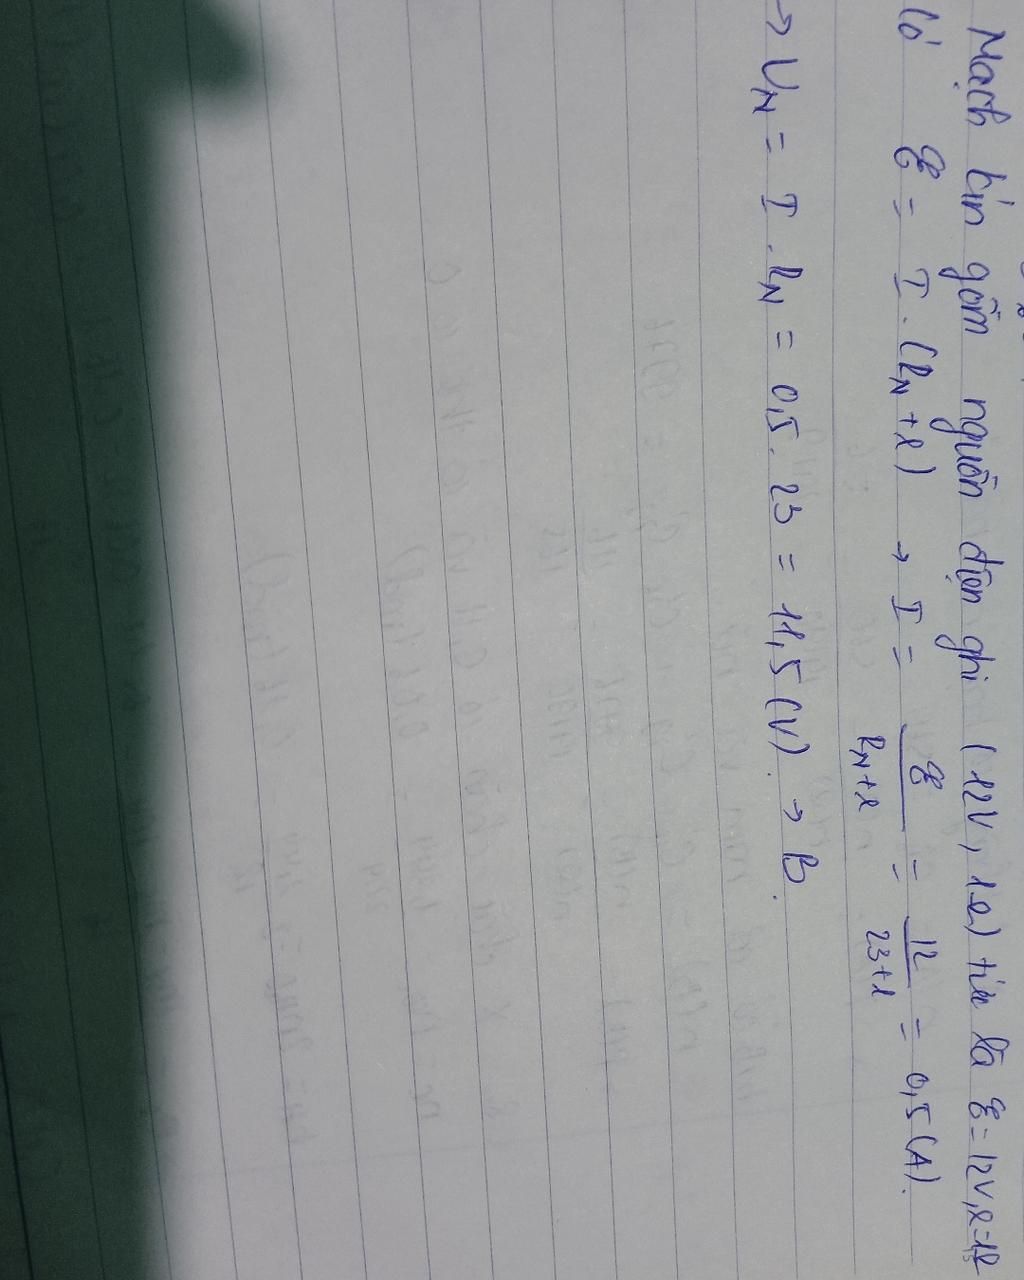 Mạch kín gồm nguồn điện ghi (12V, 1Ω) tức là ℰ = 12V, r = 1Ω
Có ℰ = I . (RN + r) → I = ℰ / RN + r = 12 / 23 + 1 = 0,5 (A).
→ UN = I . RN = 0,5 . 23 = 11,5 (V). → B.